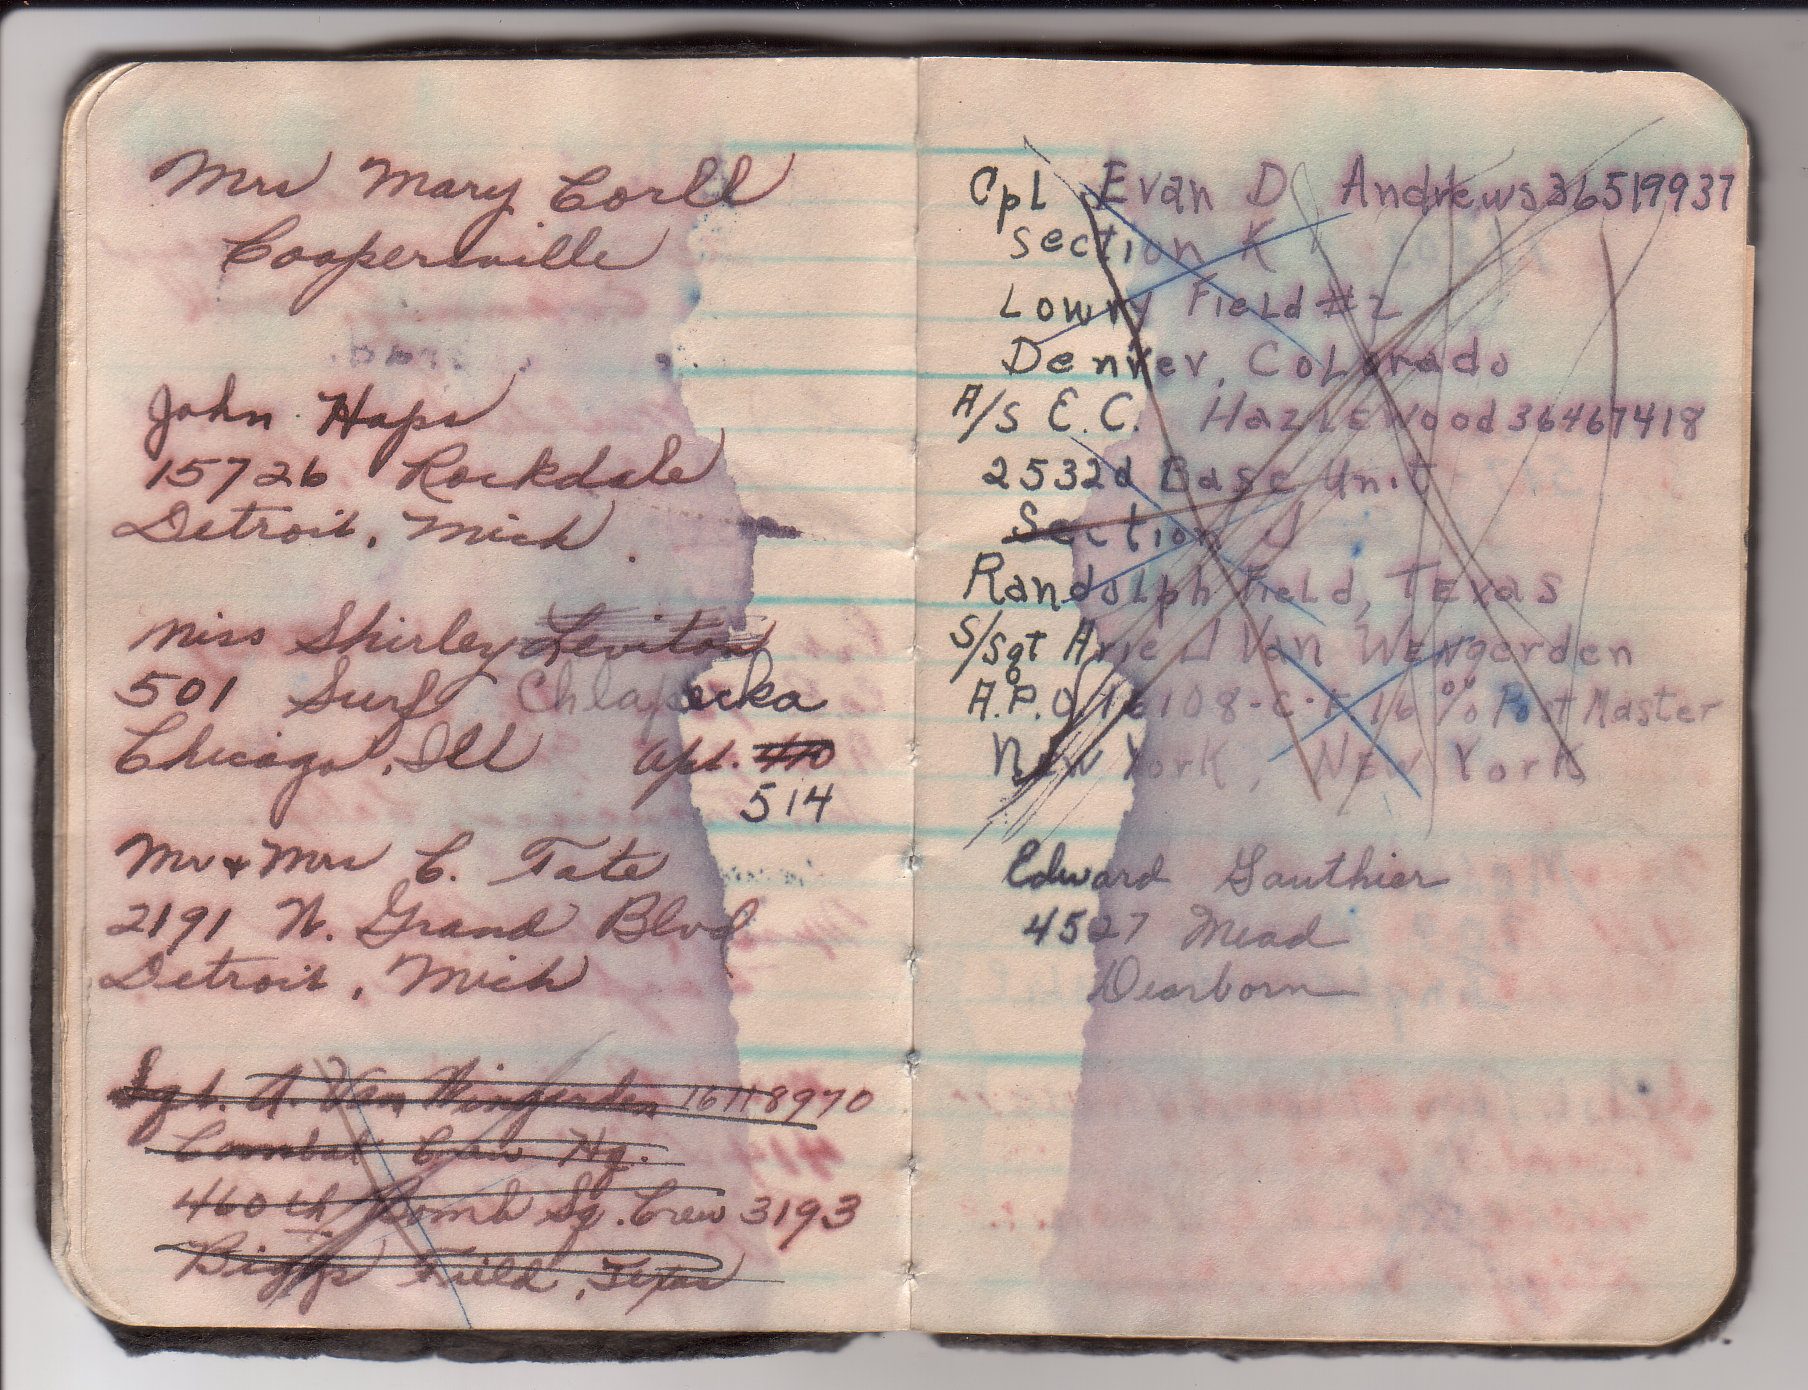 Mrs Mary Corll
Coopersville
John Haps
15726 Rockdale
Detroit, Mich.
Miss Shirley Leviton
501 Surf Chlapecka
Chicago, Ill Apt. 410
514
Mr + Mrs C. Tate
2191 N. Grand Blvd
Detroit, Mich
Sgt. A. Van Wingerden 16118970
Combat Crew Hq.
460th Bomb Sq. Crew 3193
Biggs Field, Texas
Cpl Evan D Andrews 36519937
Section K
Lowry Field #2
Denver, Colorado
A/S E.C. Hazlewood 36467418
2532d Base Unit
Section J
Randolph Field, Texas
S/Sgt Arie J Van Wengerden
A.P.O. 16108-C.F. 16 % Post Master
New York, New York
Edward Gauthier
4527 Mead
Dearborn